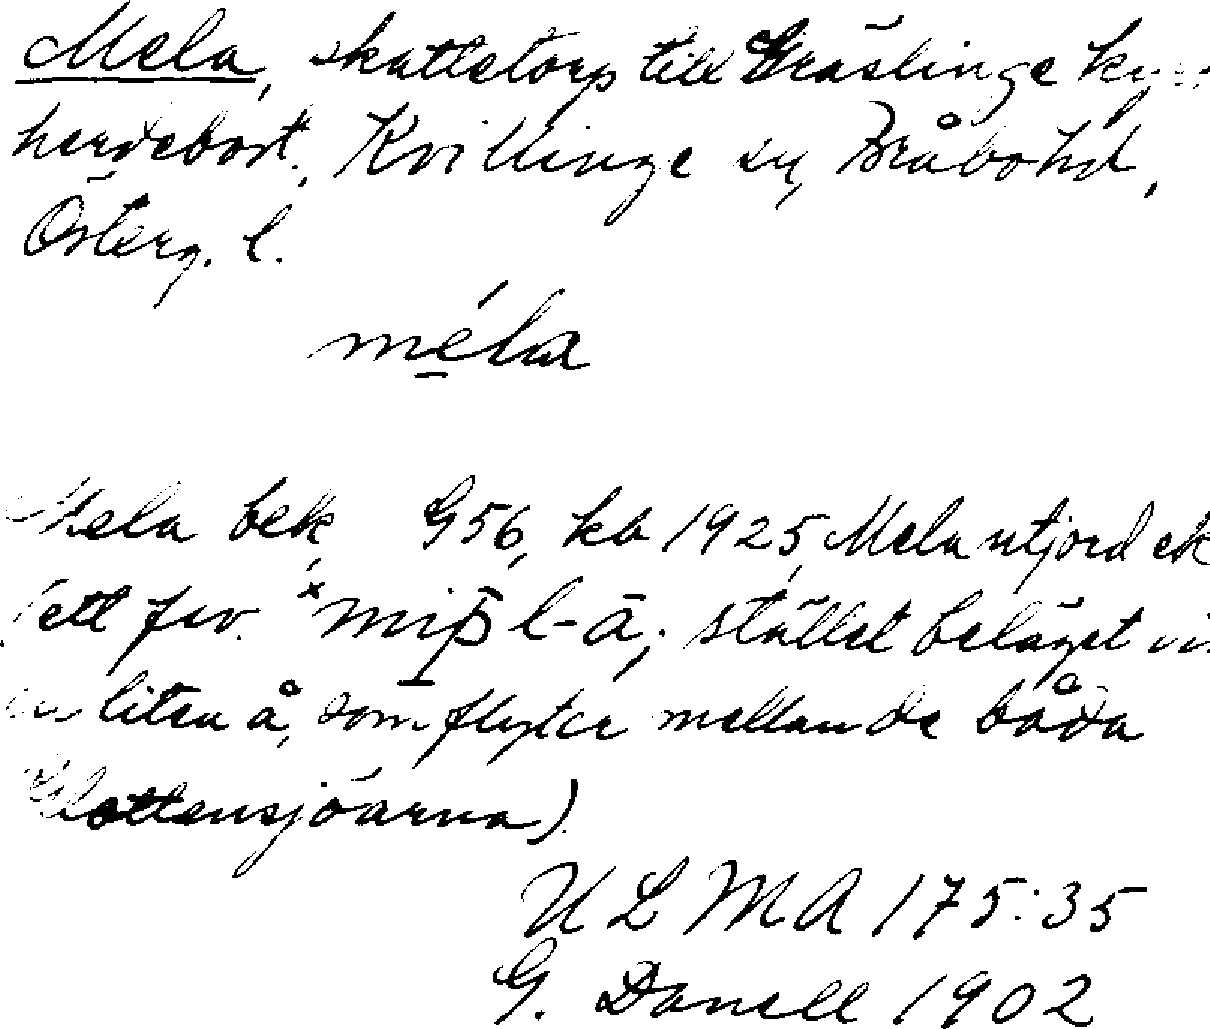 Mela, skattetorp till Gräslinge ky
herdebost., Kvillinge sn, Bråbo hd,
Österg. l.
méla
Mela bek, G56, kb 1925, Mela utjord ek
(ett fsv. *miþl-ā; stället beläget vi
en liten å, som flyter mellan de båda
Glottensjöarna).
ULMA 175:35
G. Danell 1902